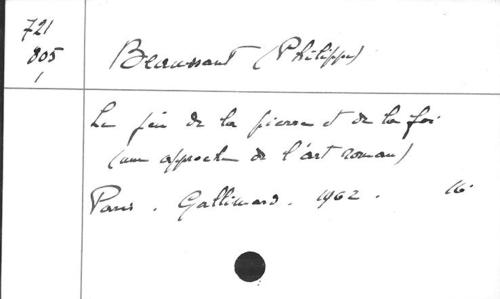 721
805
1
Beaussant (Philippe)
Le jeu de la pierre et de la foi
(une approche de l'art roman)
Paris. Gallimard. 1962. 16°